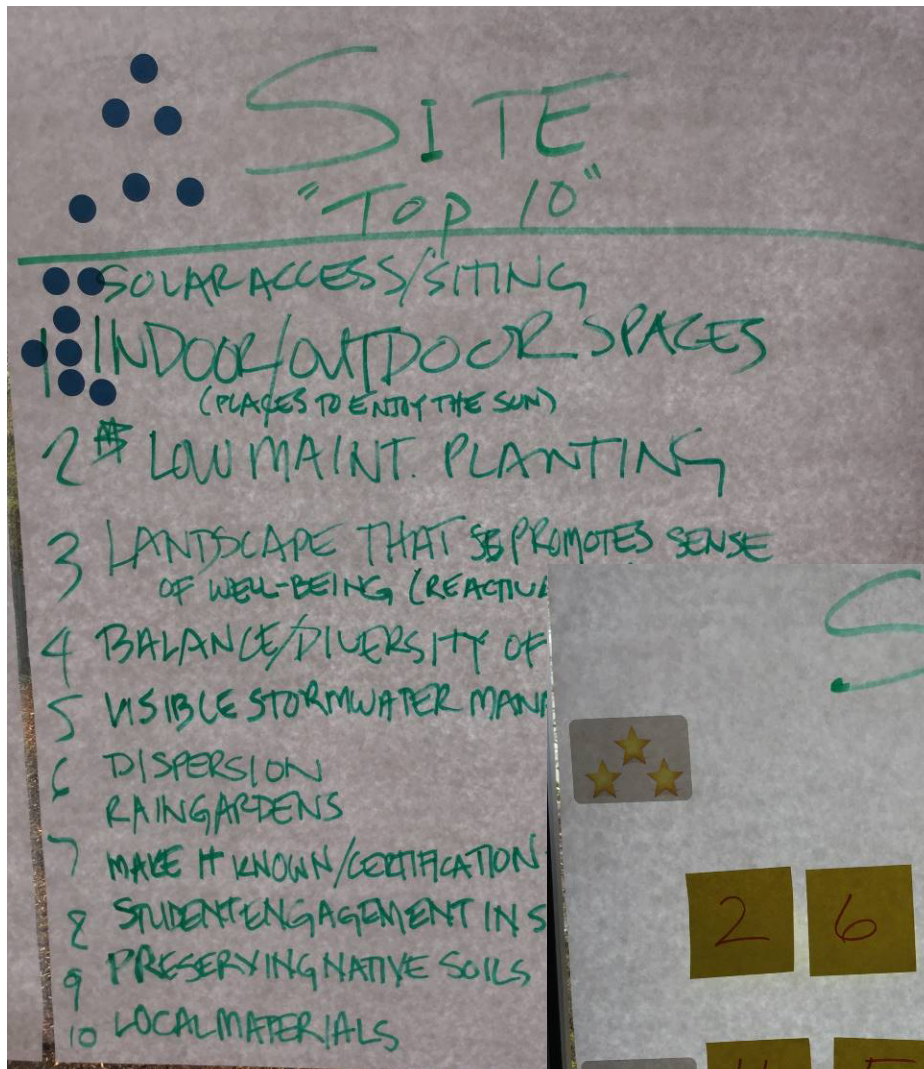 SITE
"TOP 10"
SOLAR ACCESS/SITING
1 INDOOR/OUTDOOR SPACES
(PLACES TO ENJOY THE SUN)
2 LOW MAINT. PLANTING
3 LANDSCAPE THAT PROMOTES SENSE
OF WELL-BEING (REACTIVA
4 BALANCE/DIVERSITY OF
5 VISIBLE STORMWATER MANA
6 DISPERSION
RAINGARDENS
7 MAKE IT KNOWN/CERTIFICATION
8 STUDENT ENGAGEMENT IN S
9 PRESERVING NATIVE SOILS
10 LOCAL MATERIALS
S
2 6